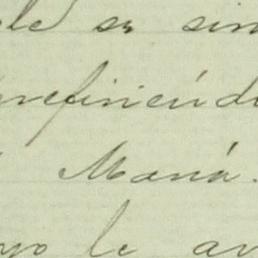 le su sin
prefiriéndo
María.
yo le av